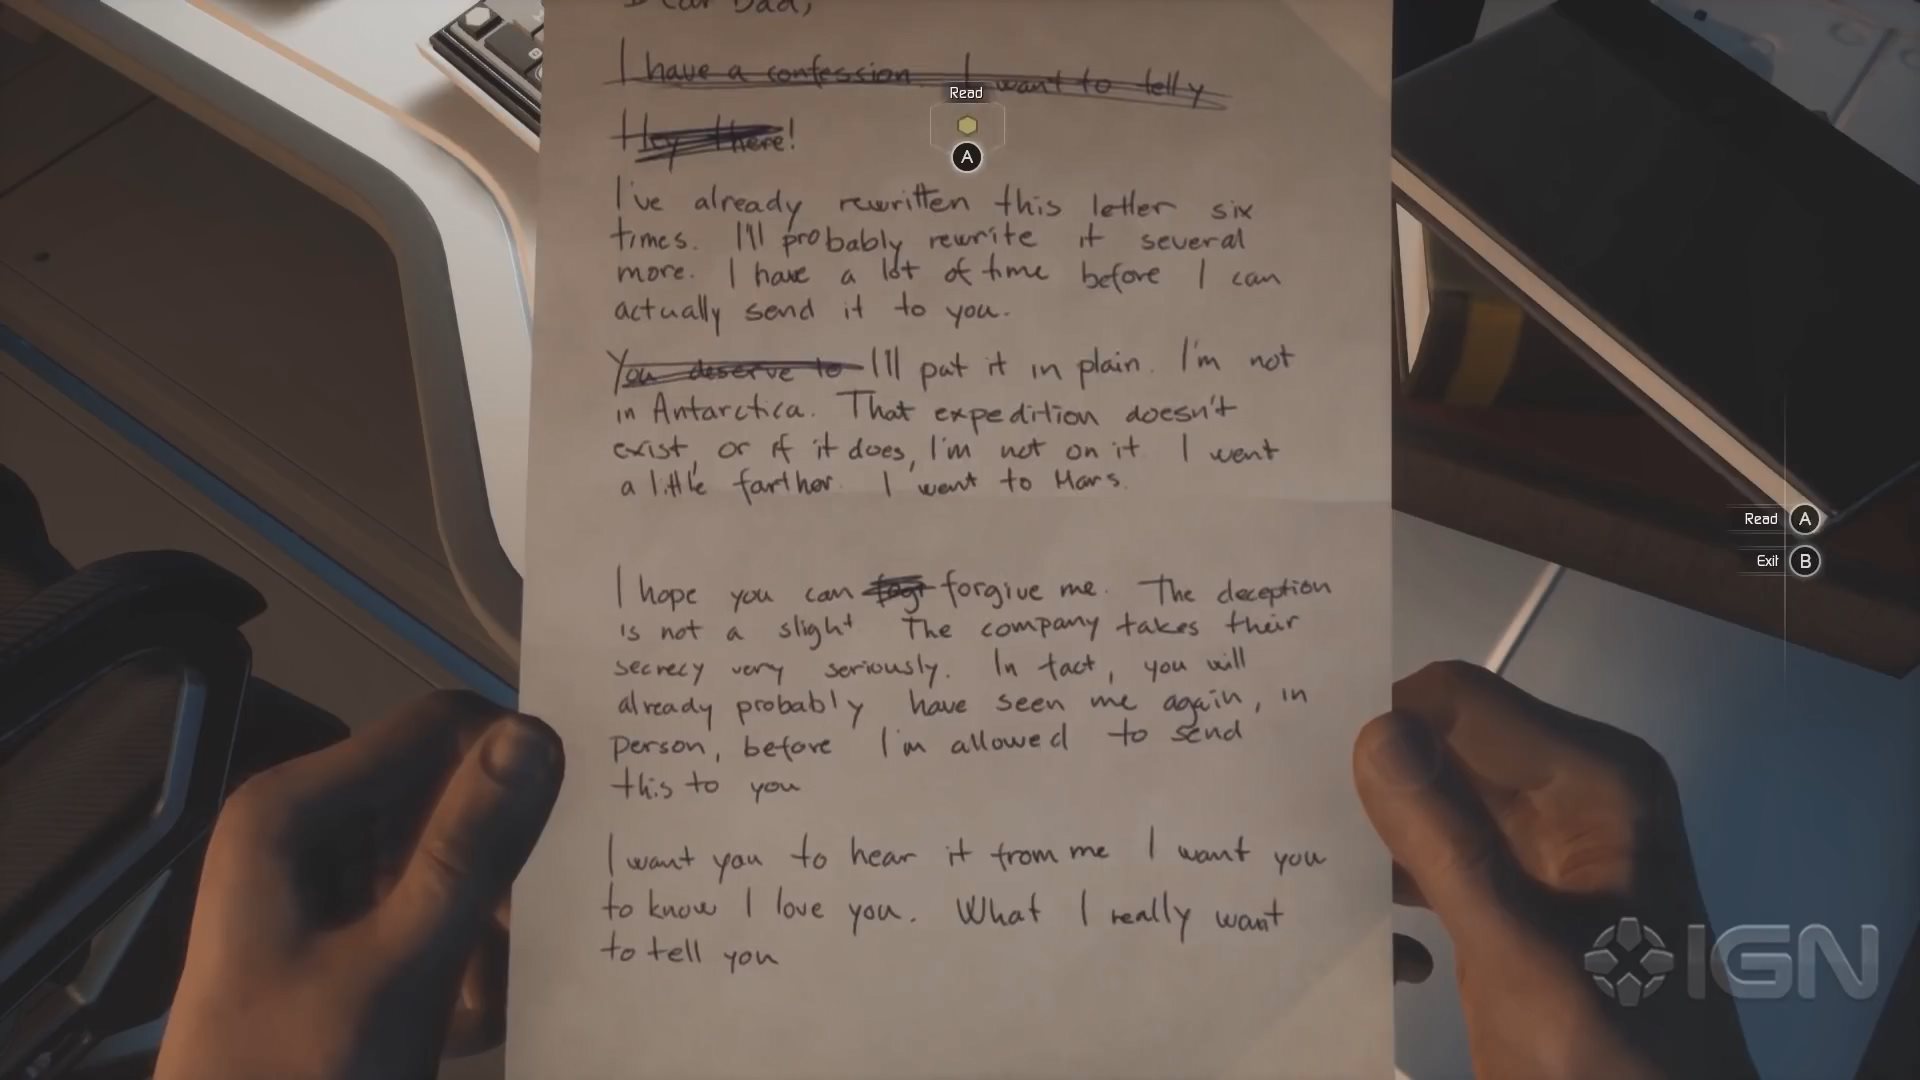 Dear Dad,
I have a confession I want to tell y
Read
Hey there!
A
I've already rewritten this letter six
times. I'll probably rewrite it several
more. I have a lot of time before I can
actually send it to you.
You deserve to I'll put it in plain. I'm not
in Antarctica. That expedition doesn't
exist, or if it does, I'm not on it I went
a little farther. I went to Mars.
Read A
Exit B
I hope you can forgive me. The deception
is not a slight The company takes their
secrecy very seriously. In fact, you will
already probably have seen me again, in
person, before I'm allowed to send
this to you
I want you to hear it from me I want you
to know I love you. What I really want
to tell you
IGN